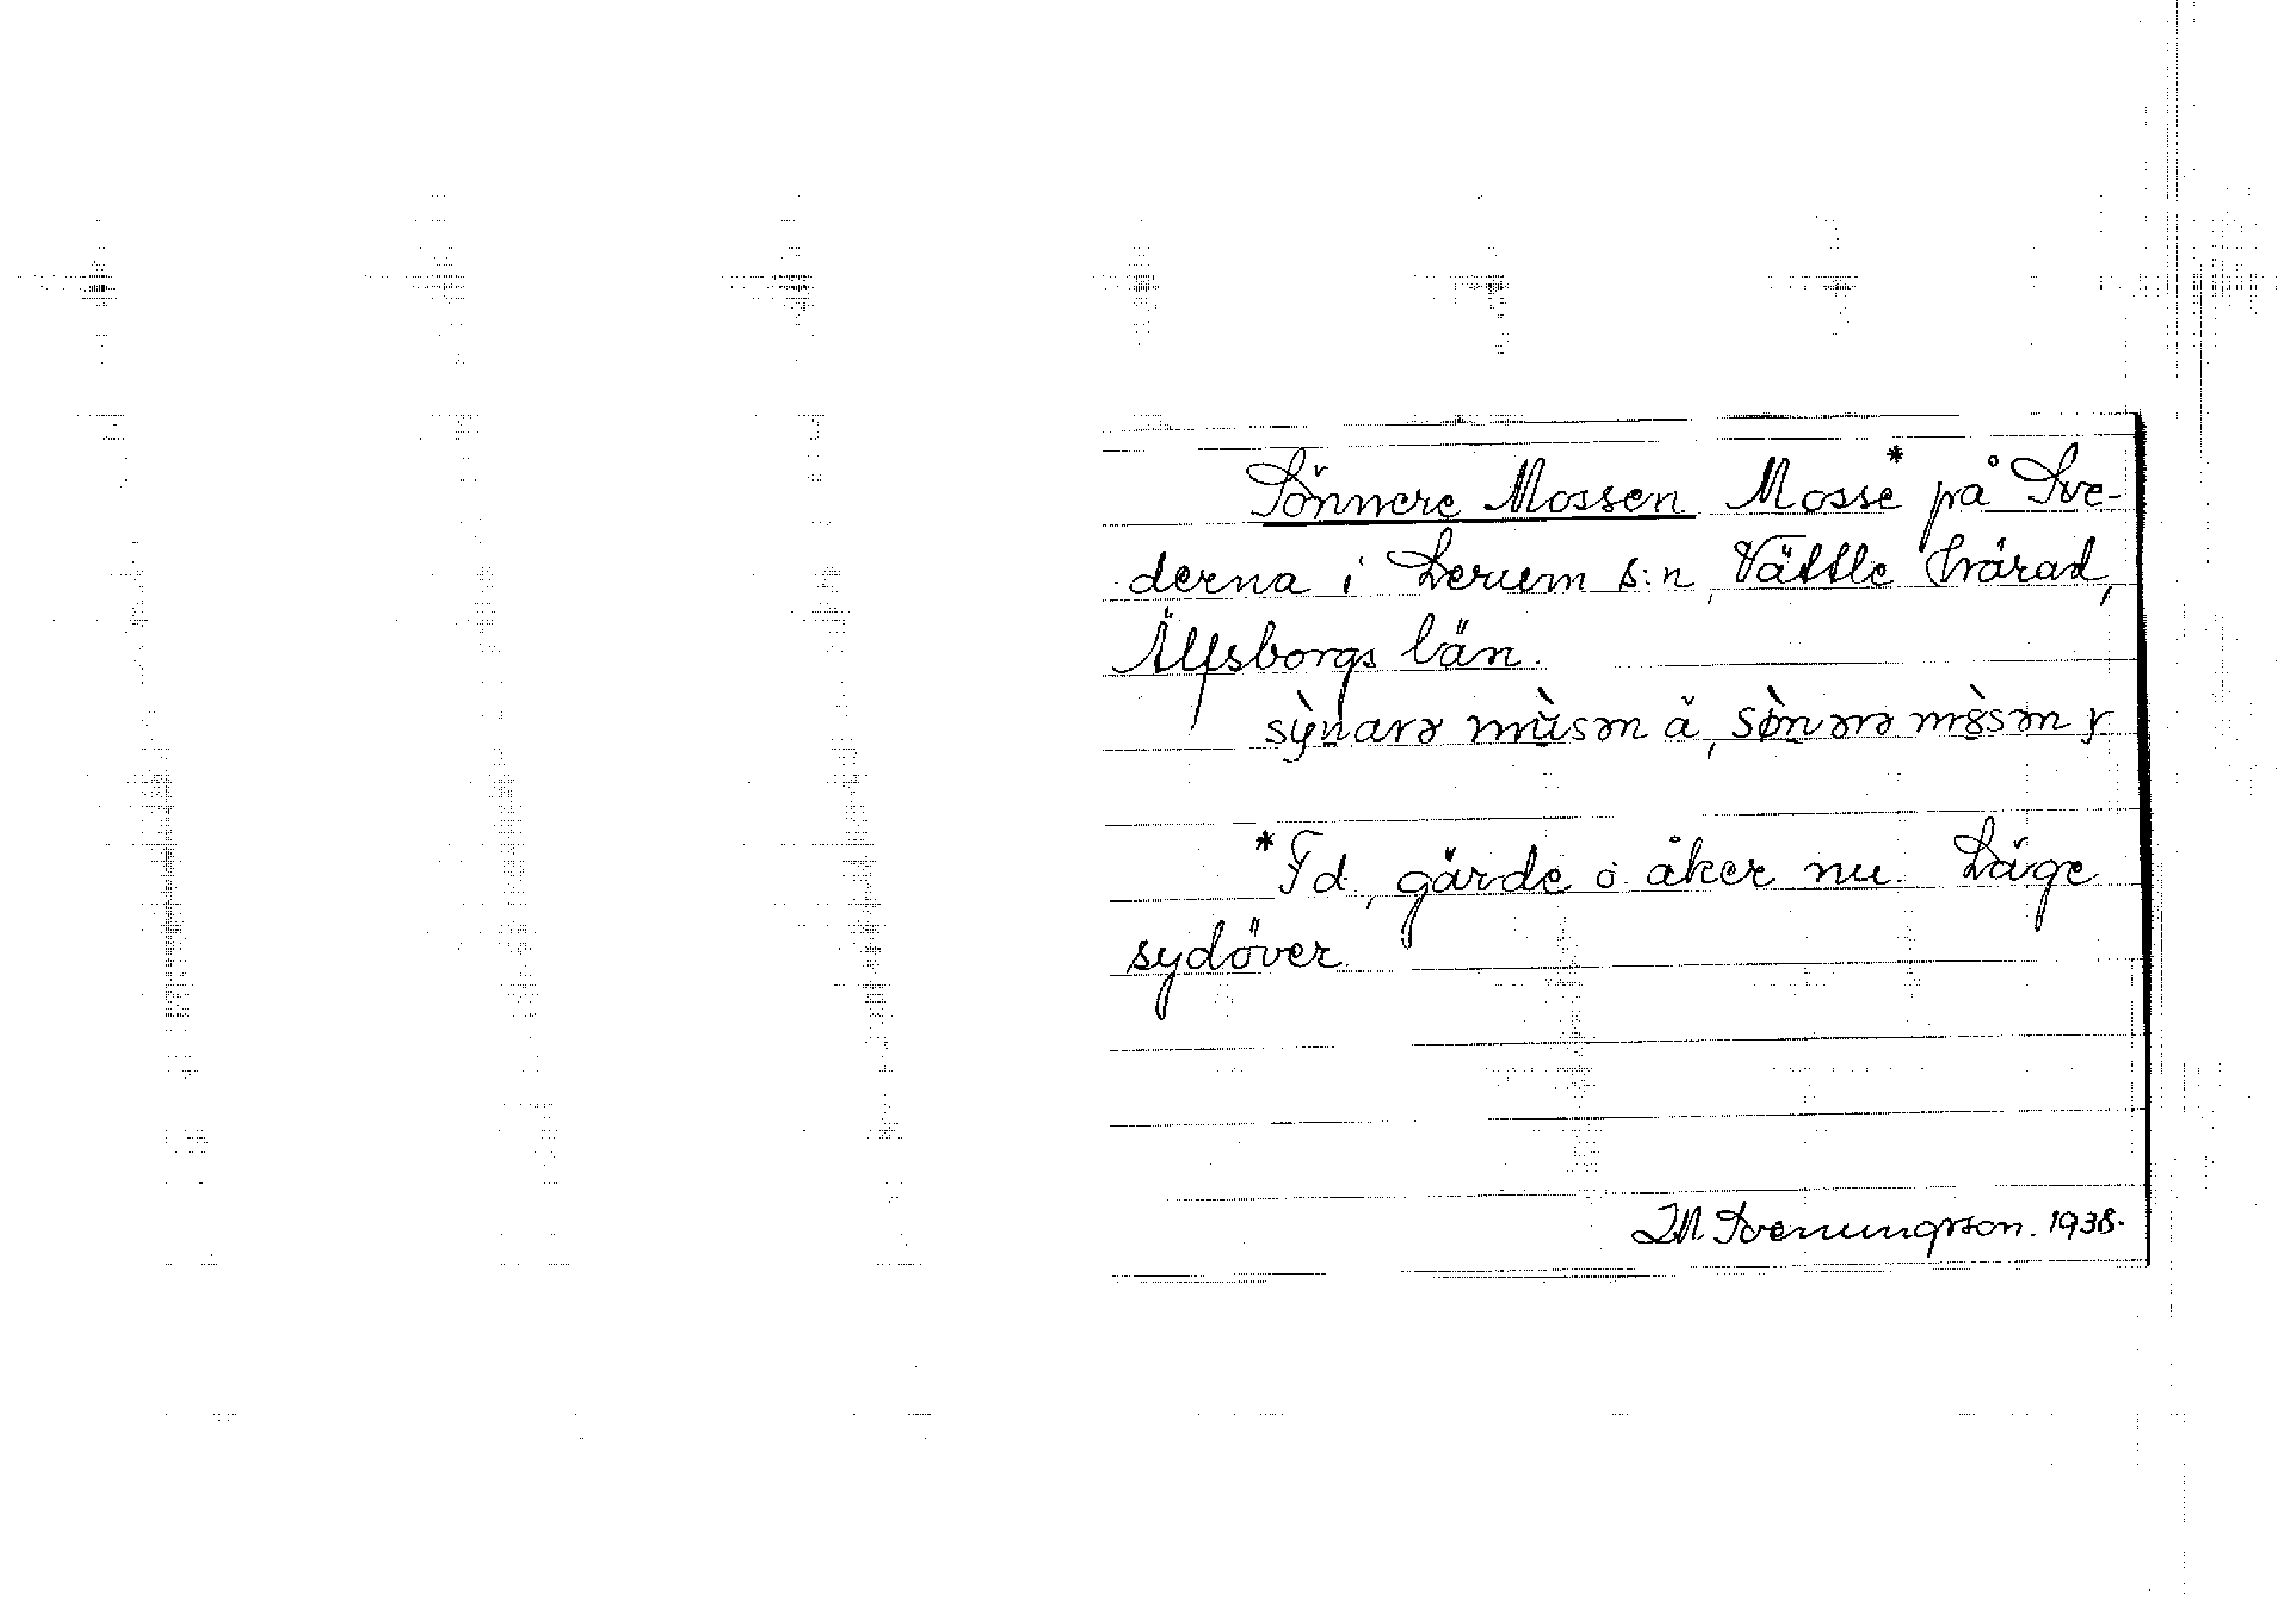 Sönnere Mossen. Mosse* på Sve-
-derna i Lerum s:n, Vättle härad,
Älfsborgs län.
sỳnarə mùsən ä, sø̀nərə mòsən y
*F d., gärde o. åker nu. Läge
sydöver.
I M. Svenungsson. 1938.